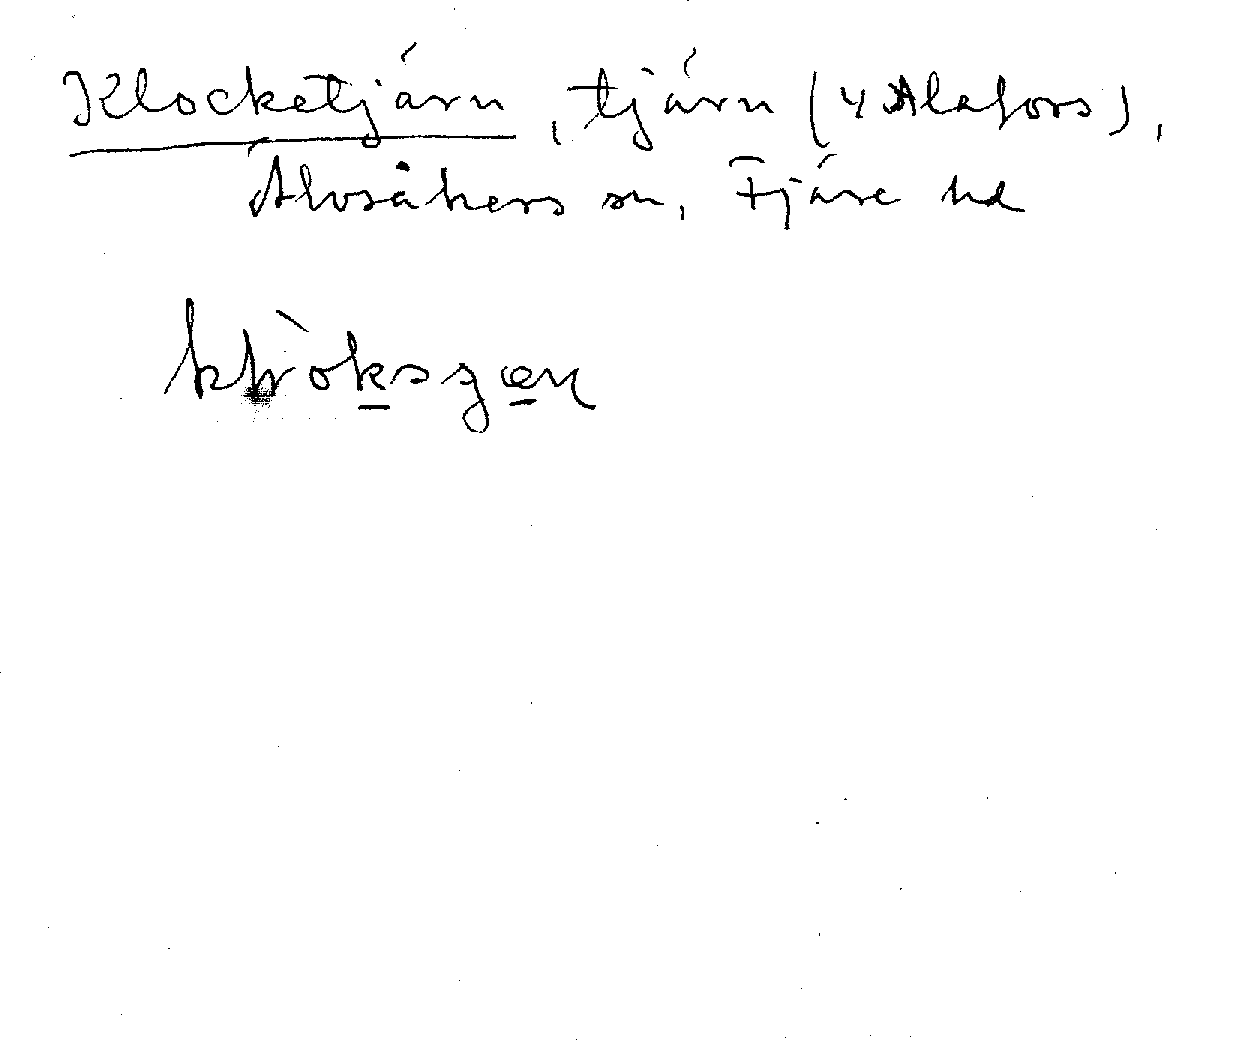 Klocketjärn, tjärn (4 Alafors),
Älvsåkers sn, Fjäre hd